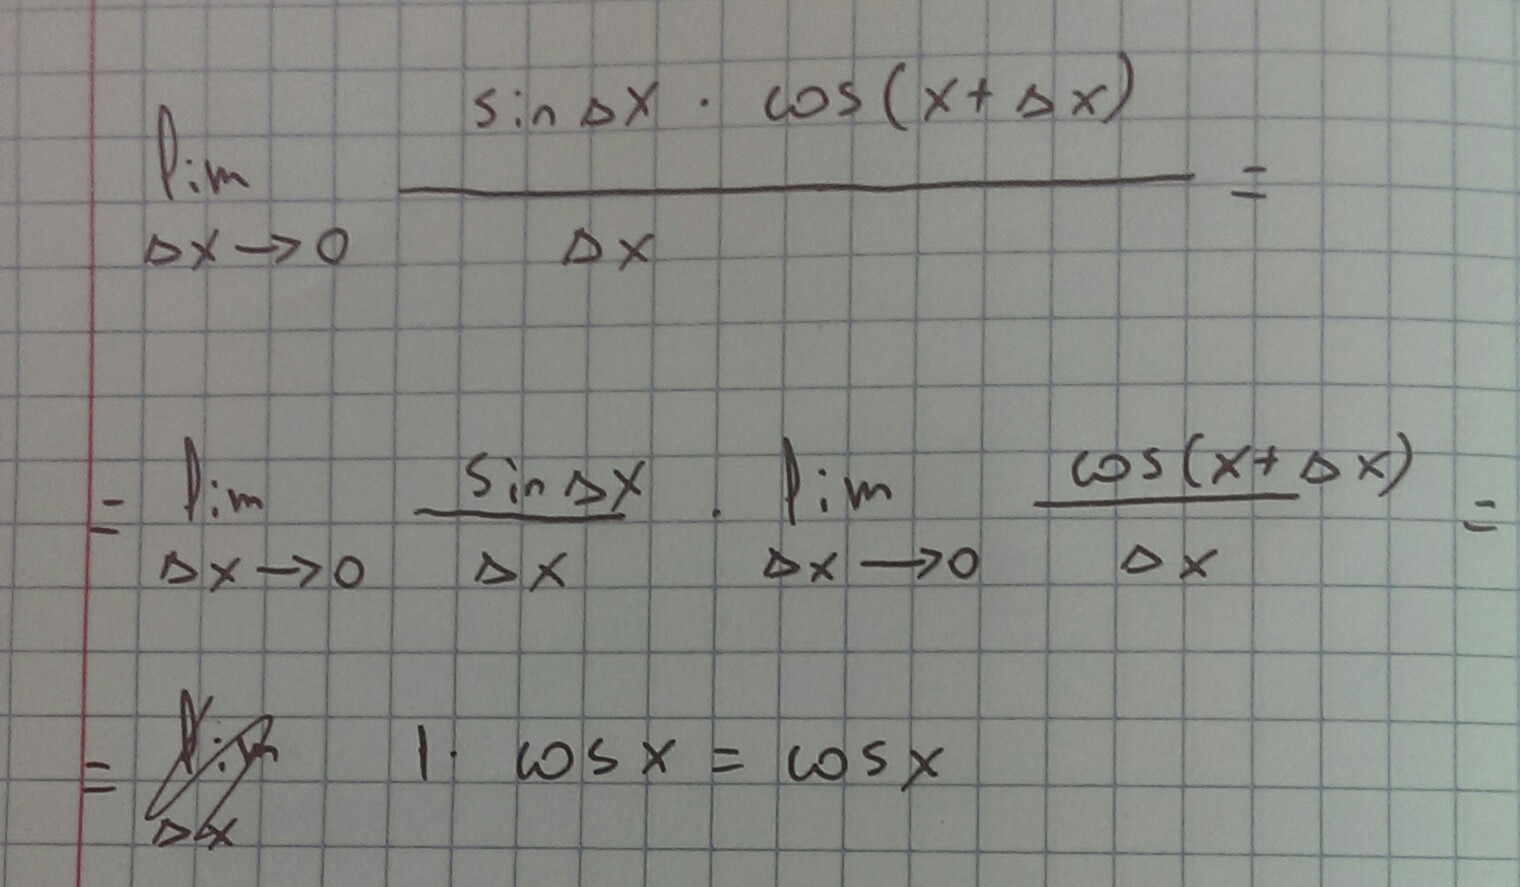 lim Δx→0 sin Δx · cos(x + Δx) / Δx =
= lim Δx→0 sin Δx / Δx · lim Δx→0 cos(x + Δx) / Δx =
= lim Δx 1 · cos x = cos x